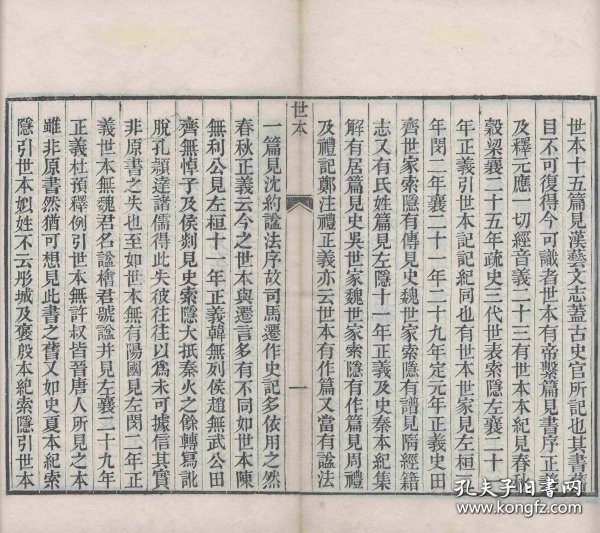 世本十五篇見漢藝文志蓋古史官所記也其書
目不可復得今可識者世本有帝繫篇見書序正義
及釋元應一切經音義二十三有世本本紀見春
穀梁襄二十五年疏史三代世表索隱左襄二十
年正義引世本記記紀同也有世本世家見左桓
年閔二年襄二十一年二十九年定元年正義史田
齊世家索隱有傳見史魏世家索隱有譜見隋經籍
志又有氏姓篇見左隱十一年正義及史秦本紀集
解有居篇見史吳世家魏世家索隱有作篇見周禮
及禮記鄭注禮正義亦云世本有作篇又當有諡法
世本
一
一篇見沈約諡法序故司馬遷作史記多依用之然
春秋正義云今之世本與遷言多有不同如世本陳
無利公見左桓十一年正義韓無列侯趙無武公田
齊無悼子及侯剡見史索隱大抵秦火之餘轉寫訛
脫孔穎達諸儒得此失彼往往以為未可據信其實
非原書之失也至如世本無有陽國見左閔二年正
義世本無魏君名諡檜君號諡并見左襄二十九年
正義杜預釋例引世本無許叔皆晉唐人所見之本
雖非原書然猶可想見此書之舊又如史夏本紀索
隱引世本姒姓不云彤城及褒殷本紀索隱引世本
孔夫子旧书网
www.kongfz.com